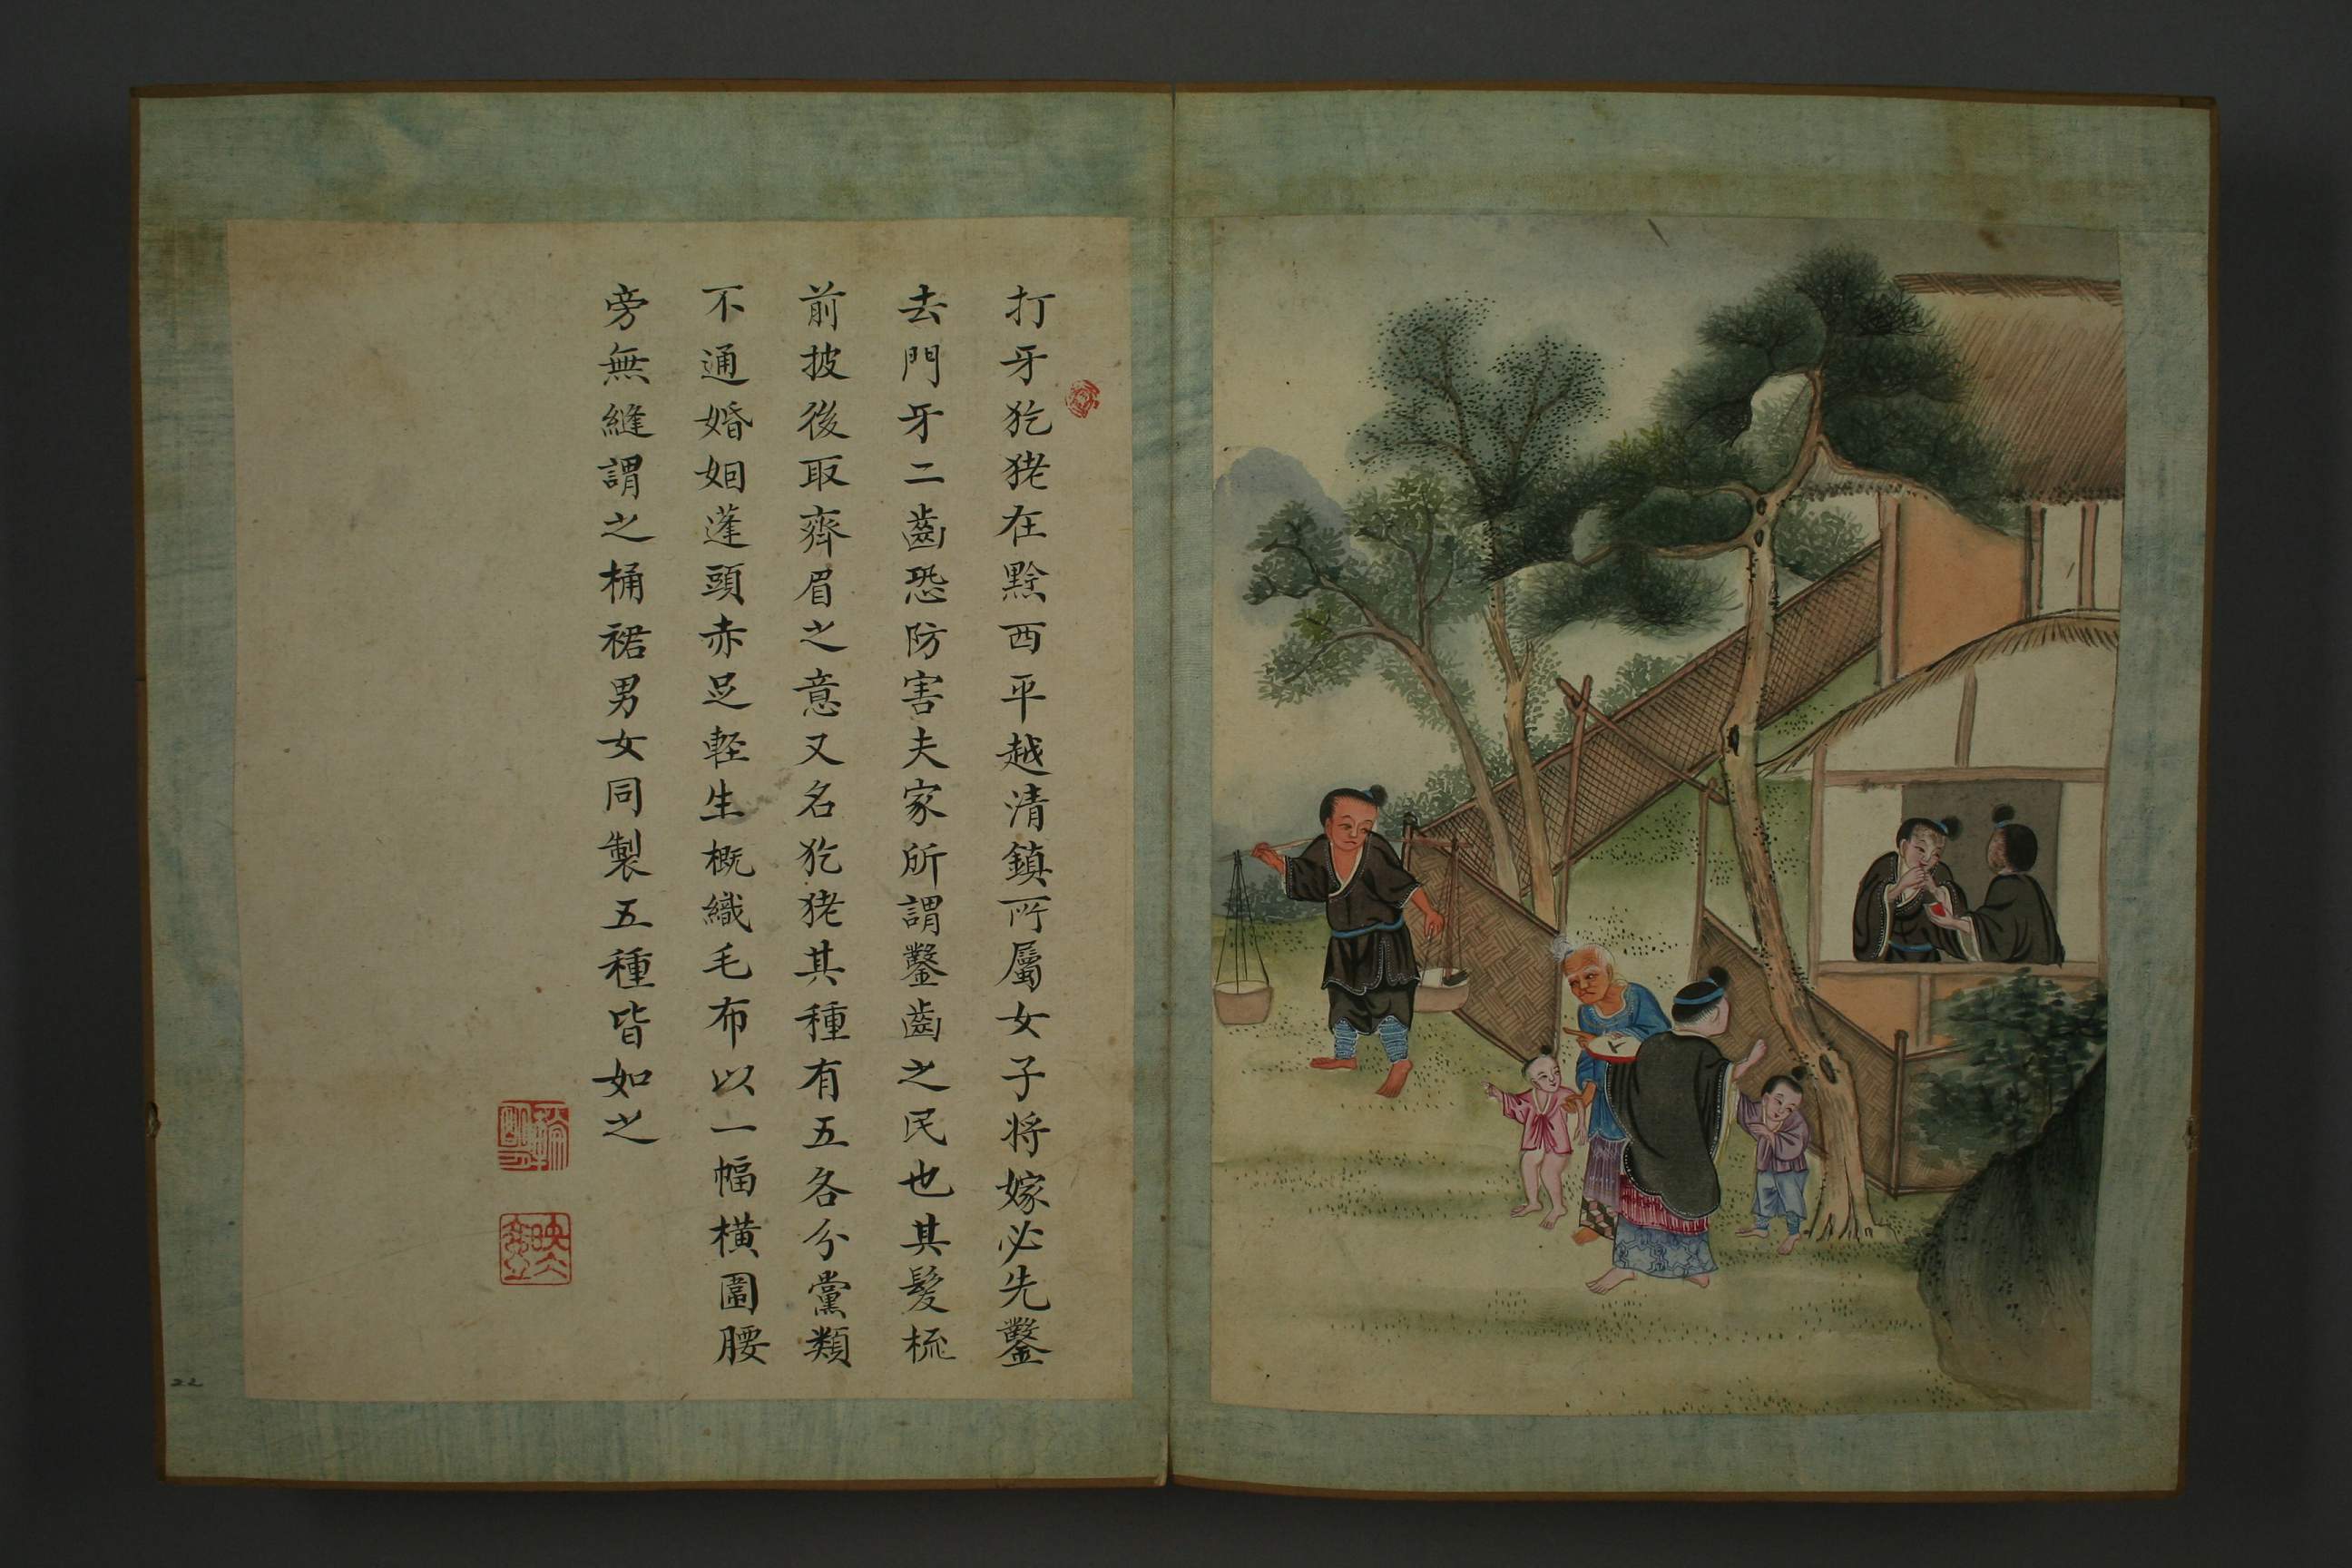 打牙犵狫在黔西平越清鎮所屬女子将嫁必先鑿
去門牙二齒恐防害夫家所謂鑿齒之民也其髮梳
前披後取齊眉之意又名犵狫其種有五各分黨類
不通婚姻蓬頭赤足輕生概織毛布以一幅橫圍腰
旁無縫謂之桶裙男女同製五種皆如之
22